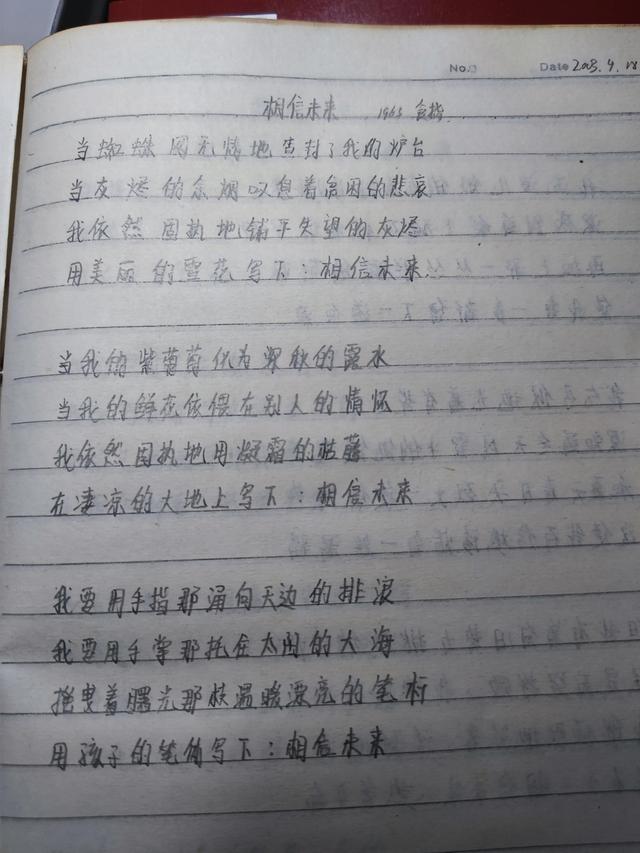 No. Date 2003.4.18
相信未来 1968 食指
当蜘蛛网无情地查封了我的炉台
当灰烬的余烟叹息着贫困的悲哀
我依然固执地铺平失望的灰烬
用美丽的雪花写下：相信未来
当我的紫葡萄化为深秋的露水
当我的鲜花依偎在别人的情怀
我依然固执地用凝霜的枯藤
在凄凉的大地上写下：相信未来
我要用手指那涌向天边的排浪
我要用手掌那托住太阳的大海
摇曳着曙光那枝温暖漂亮的笔杆
用孩子的笔体写下：相信未来